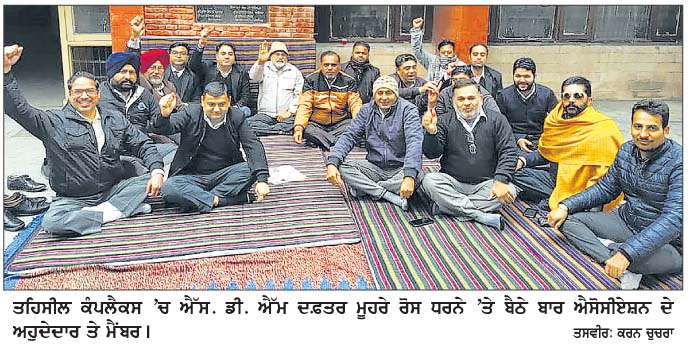 ਤਹਿਸੀਲ ਕੰਪਲੈਕਸ 'ਚ ਐੱਸ. ਡੀ. ਐੱਮ ਦਫ਼ਤਰ ਮੂਹਰੇ ਰੋਸ ਧਰਨੇ 'ਤੇ ਬੈਠੇ ਬਾਰ ਐਸੋਸੀਏਸ਼ਨ ਦੇ
ਅਹੁਦੇਦਾਰ ਤੇ ਮੈਂਬਰ।
ਤਸਵੀਰ: ਕਰਨ ਚੁਚਰਾ